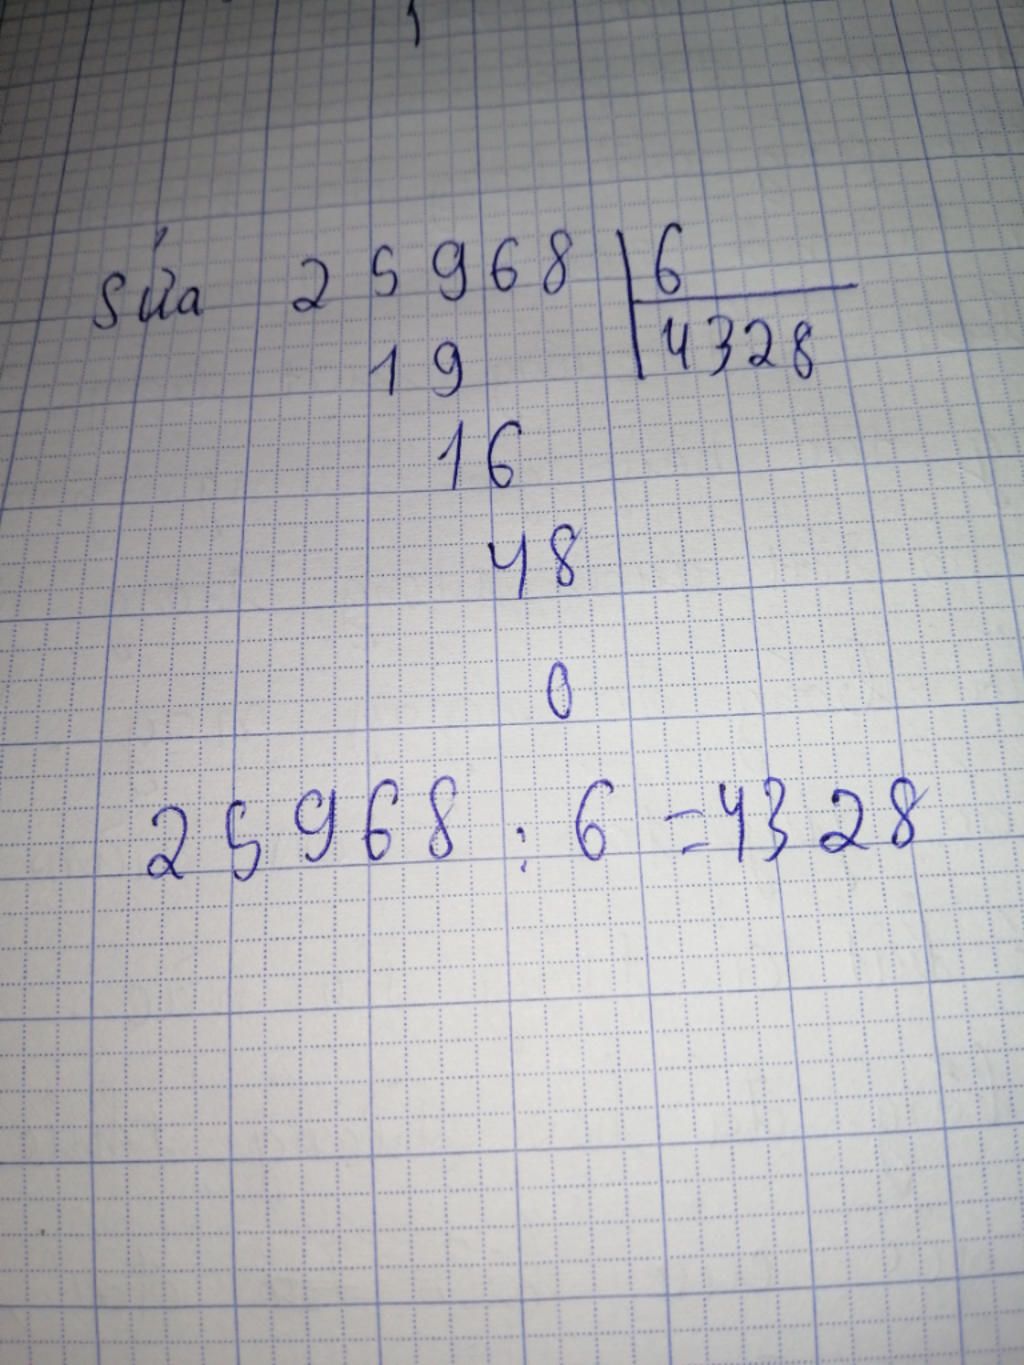 Sửa 25968 6
19 4328
16
48
0
25968 : 6 = 4328